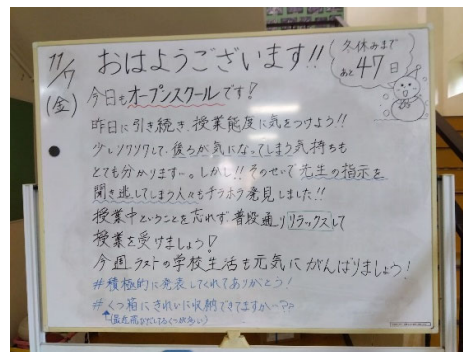 11/7
(金)
おはようございます!!
冬休みまで
あと47日
今日もオープンスクールです!
昨日に引き続き、授業態度に気をつけよう!!
少しソワソワして、後ろが気になってしまう気持ちも
とても分かります…。しかし!!そのせいで先生の指示を
聞き逃してしまう人々もチラホラ発見しました!!
授業中ということを忘れず、普段通りリラックスして
授業を受けましょう!
今週ラストの学校生活も元気にがんばりましょう!
#積極的に発表してくれてありがとう!
#くつ箱にきれいに収納できてますかー??